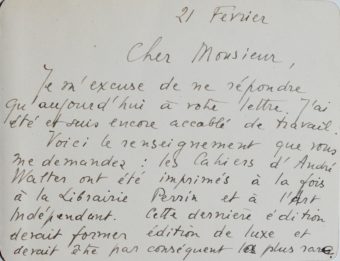 21 Février
Cher Monsieur,
Je m'excuse de ne répondre
qu'aujourd'hui à votre lettre. J'ai
été et suis encore accablé de travail.
Voici le renseignement que vous
me demandez : les Cahiers d'André
Walter ont été imprimés à la fois
à la Librairie Perrin et à l'Art
Indépendant. Cette dernière édition
devait former édition de luxe et
devait être par conséquent la plus rare.